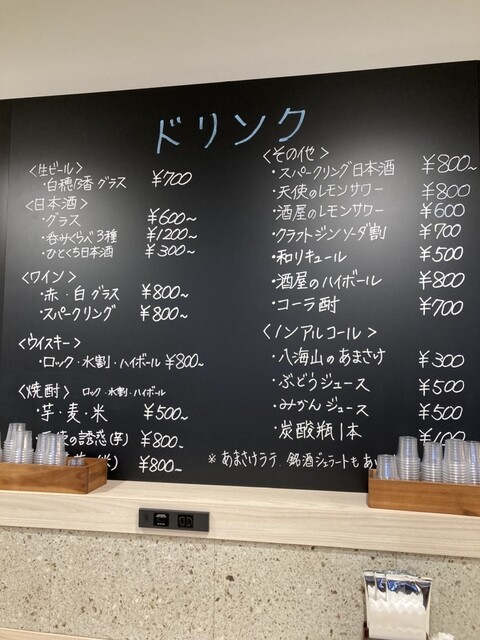 ドリンク
<生ビール>
・白穂乃香 グラス ¥700
<日本酒>
・グラス ¥600~
・呑みくらべ 3種 ¥1200~
・ひとくち日本酒 ¥300~
<ワイン>
・赤・白 グラス ¥800~
・スパークリング ¥800~
<ウイスキー>
・ロック・水割・ハイボール ¥800~
<焼酎> ロック・水割・ハイボール
・芋・麦・米 ¥500~
の誘惑(芋) ¥800~
¥800~
<その他>
・スパークリング日本酒 ¥800~
・天使のレモンサワー ¥800
・酒屋のレモンサワー ¥600
・クラフトジンソーダ割 ¥700
・和リキュール ¥500
・酒屋のハイボール ¥800
・コーラ酎 ¥700
<ノンアルコール>
・八海山のあまさけ ¥300
・ぶどうジュース ¥500
・みかんジュース ¥500
・炭酸瓶1本 ¥100
※あまさけラテ、銘酒ジェラートもあ